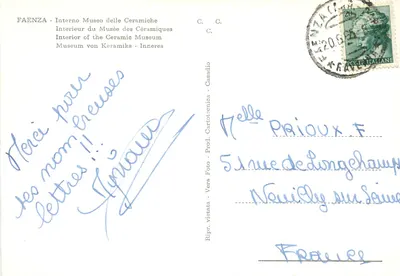 FAENZA - Interno Museo delle Ceramiche
Interieur du Musée des Céramiques
Interior of the Ceramic Museum
Museum von Keramike - Inneres
C. C.
C.
Merci pour
ses nombreuses
lettres!!!
Ripr. vietata - Vera Foto - Prod. Cartoniente - Casadio
FAENZA
ITALIANE
Melle PRIOUX. F
51 rue de Longchamp
Neuilly sur Seine
France